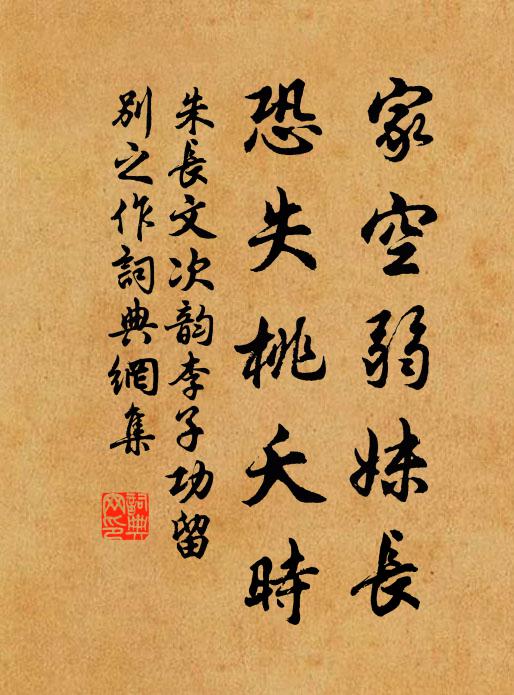 家空弱妹長
恐失桃夭時
朱長文次韵李子功留
別之作詞典網集
詞典網印